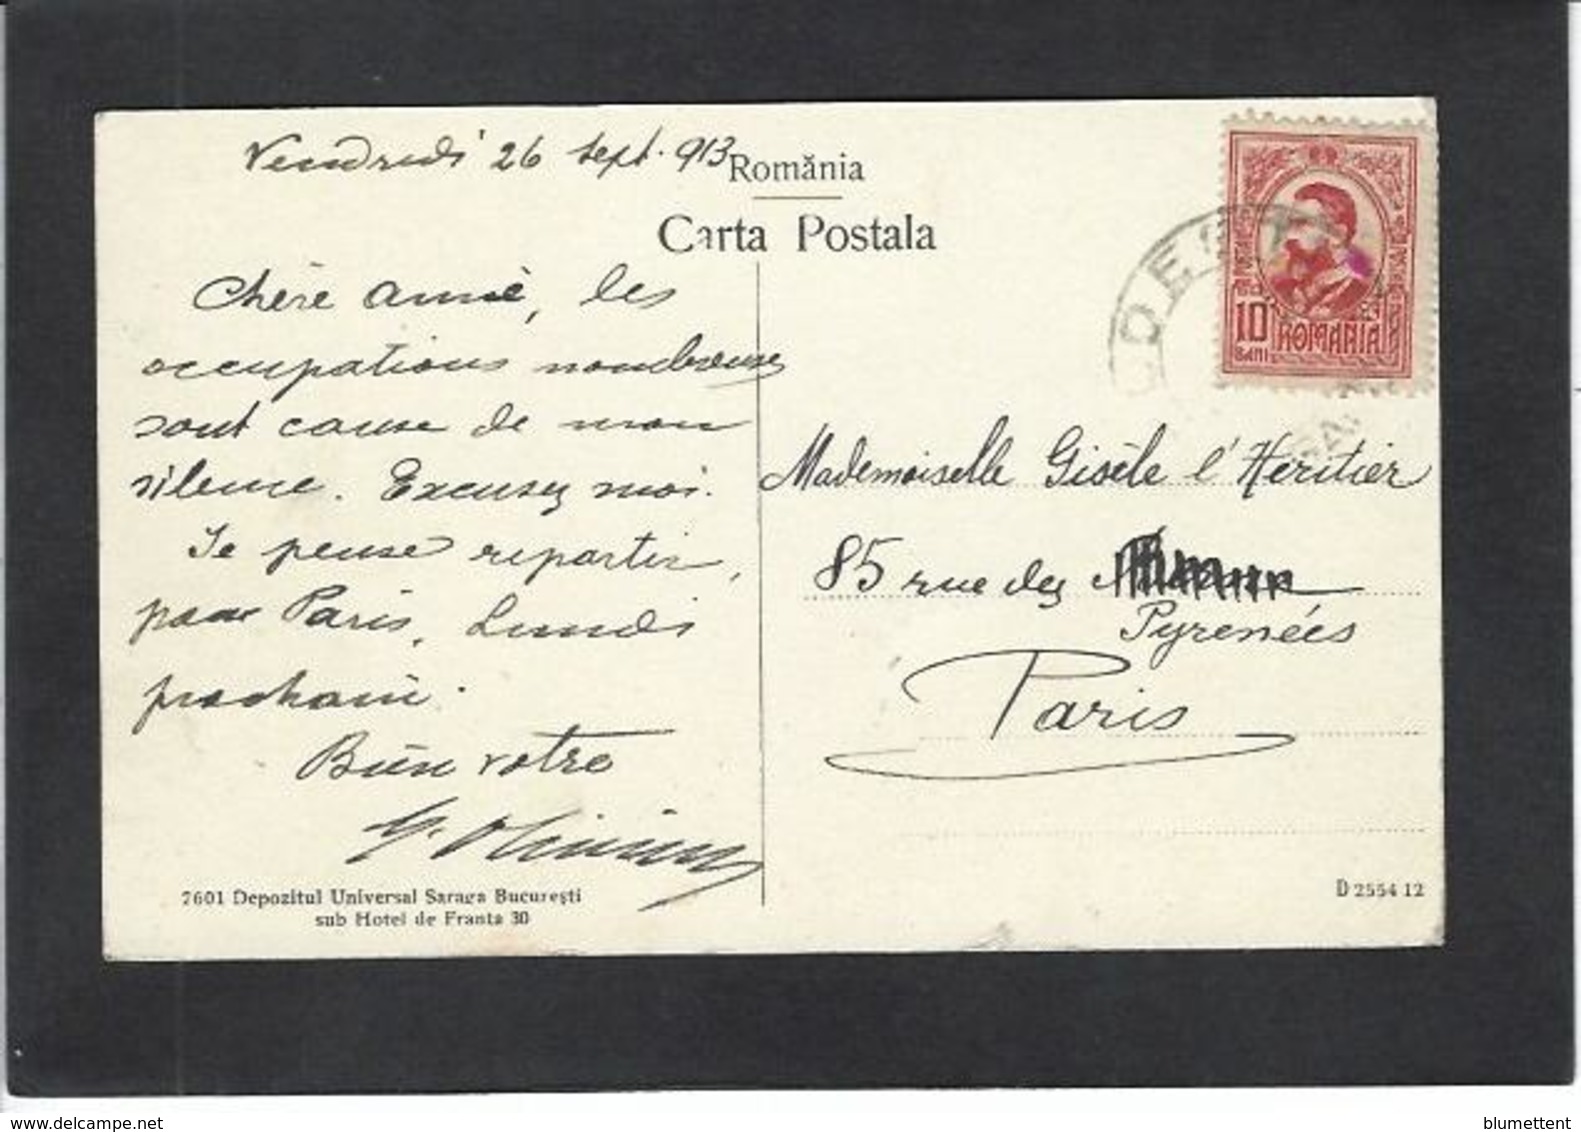 Vendredi 26 sept. 913
România
Carta Postala
Chère amie, les
occupations nombreuses
sont cause de mon
silence. Excusez moi.
Je pense repartir,
pour Paris, Lundi
prochain.
Bien votre
7601 Depozitul Universal Saraga Bucureşti
sub Hotel de Franta 30
10
BANI
ROMANIA
Mademoiselle Gisèle l'Heritier
85 rue des
Pyrenées
Paris
D 2554 12
blumettent